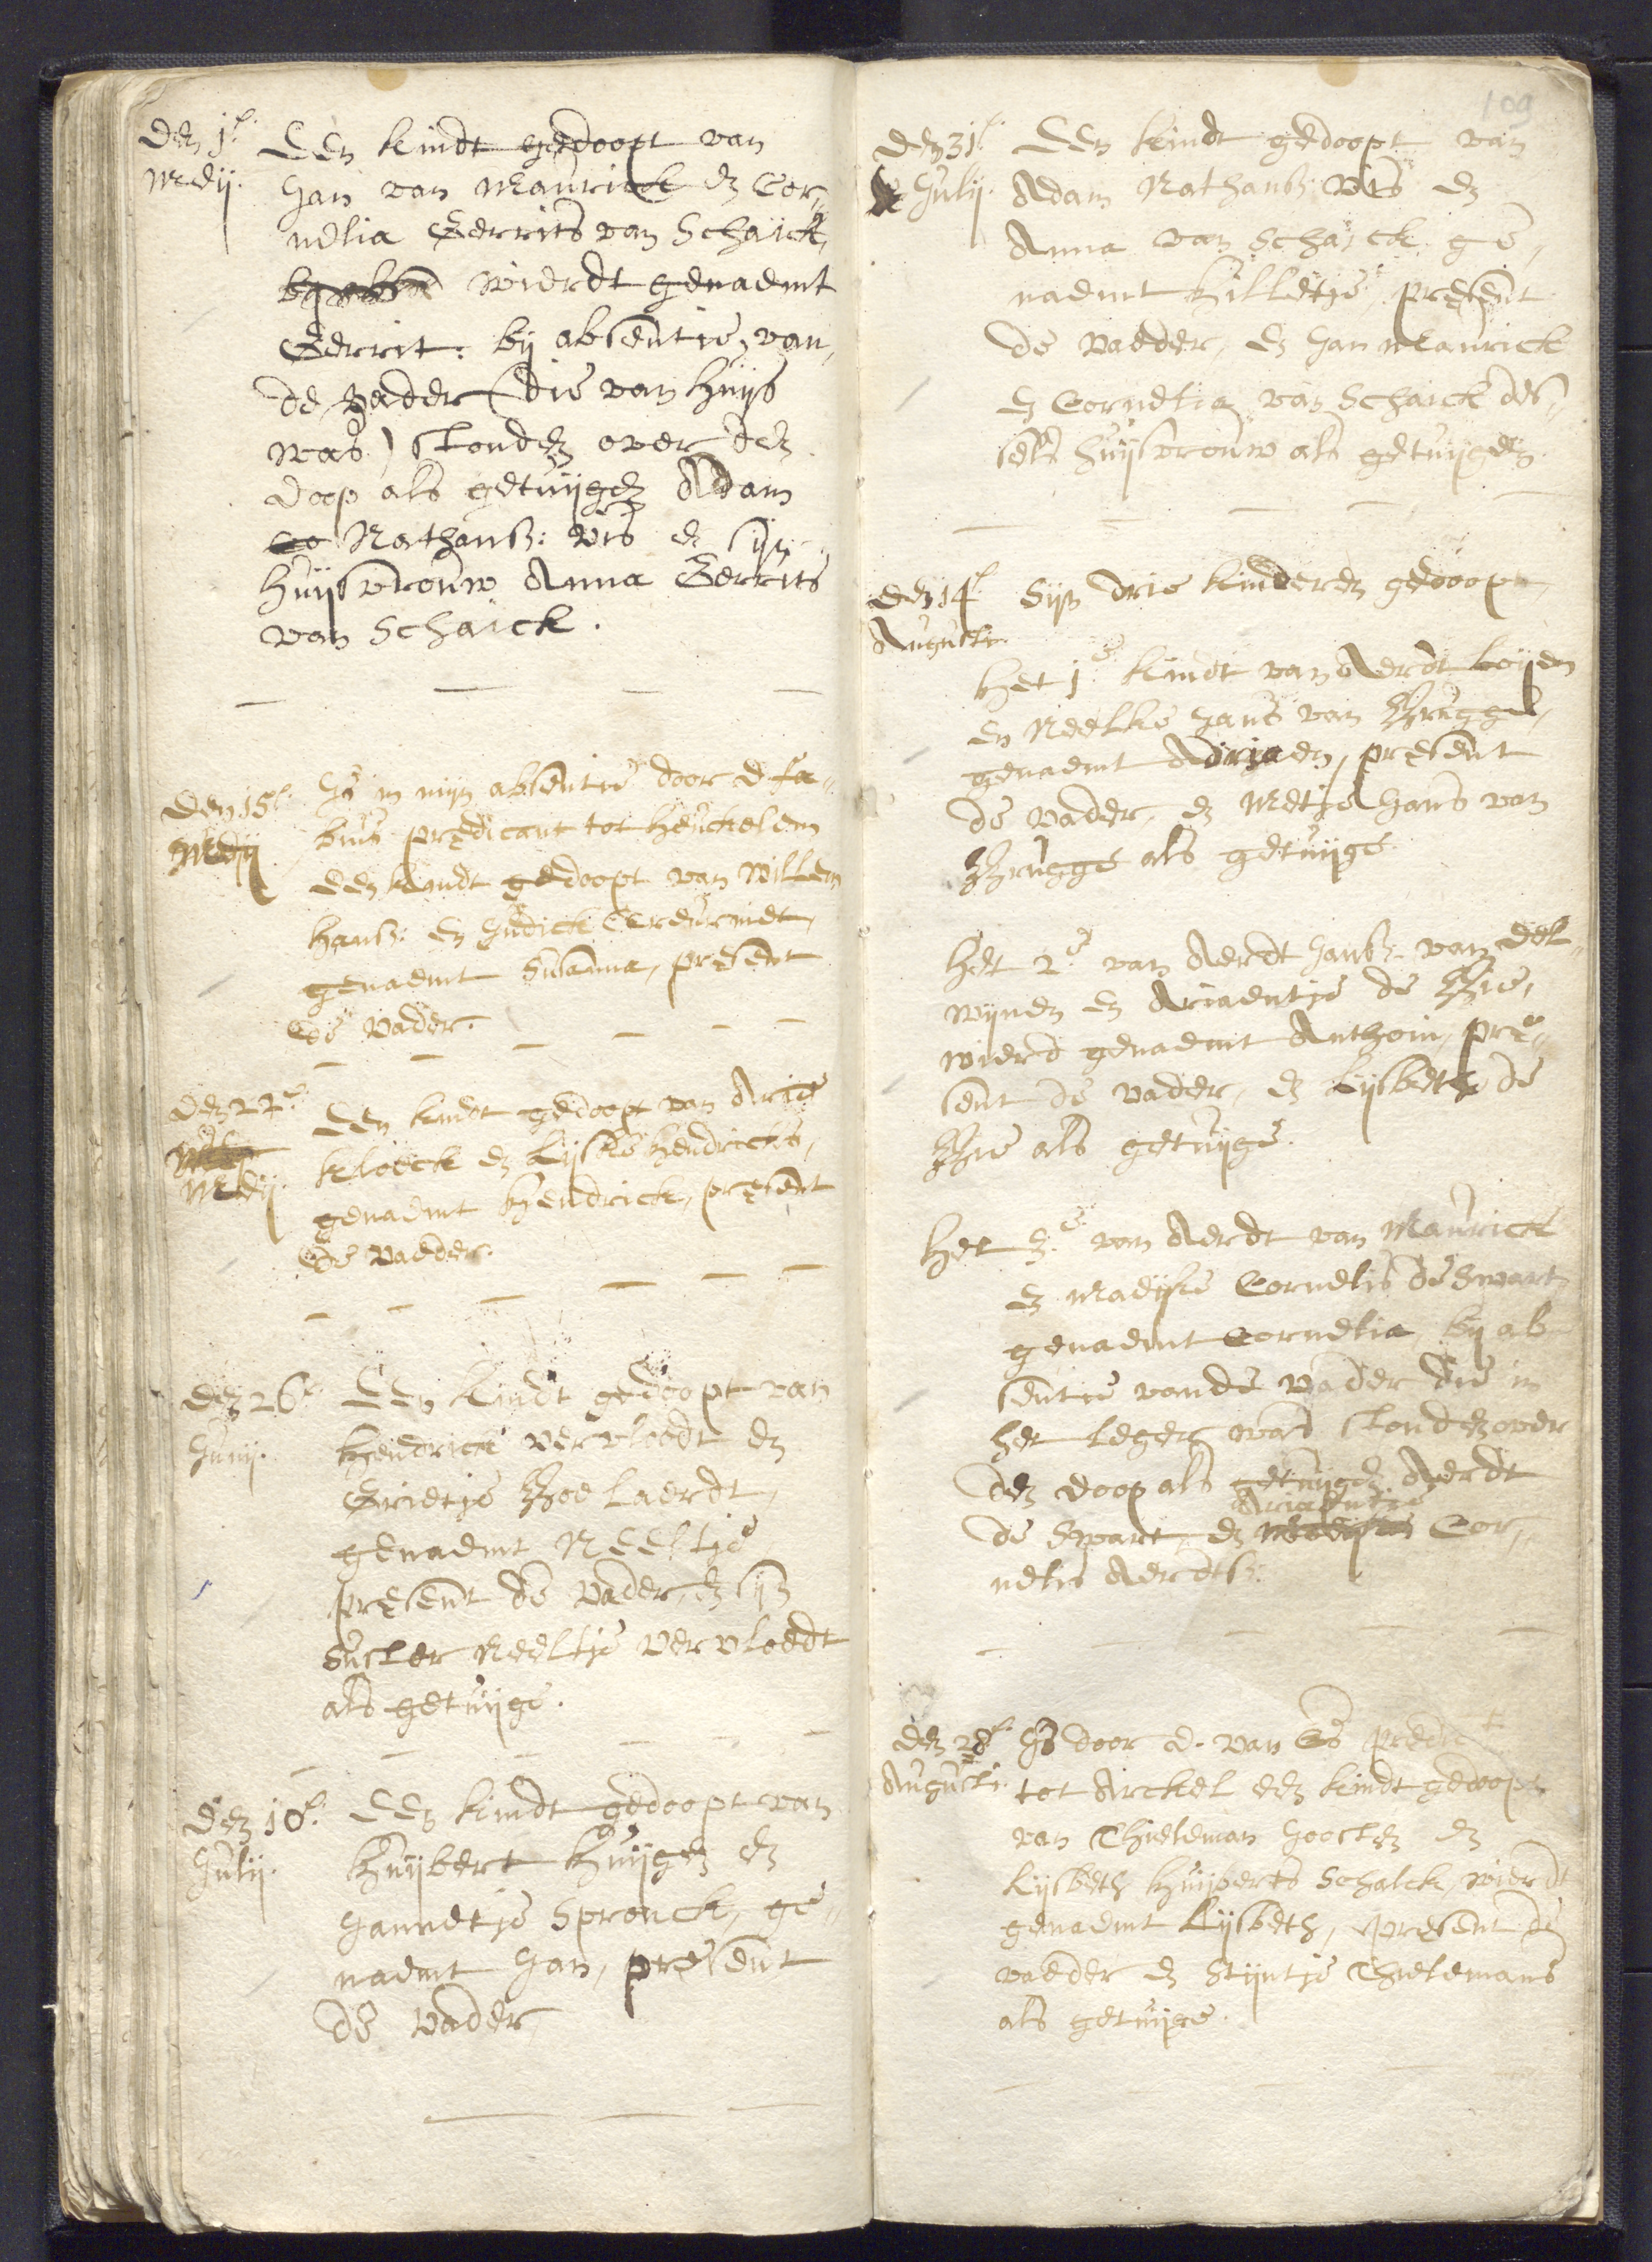 den 1e.
Meij.
Een kindt gedoopt van
Jan van Maurick en Cor„
nelia Gerrits van Schaick,
wierdt genaemt
Gerrit: bij absentie van
de vader (die van huijs
was) stonden over den
doop als getuijgen Adam
Nathansz: Vis en sijn
huijsvrouw Anna Gerrits
van Schaick.
den 15e.
Meij
Is in mijn absentie door D. Fa„
bius predicant tot Heuckelem
een kindt gedoopt van Willem
Hansz: en Judick
genaemt Susanna, present
de Vader.
den 22e.
Meij.
Een kindt gedoopt van Arie
Kloeck en Lijske Hendricks,
genaemt Hendrick, present
de Vaeder.
den 26e.
Junij.
Een kindt gedoopt van
Hendrick Vervloedt en
Grietje Boelaerdt,
genaemt Neeltje,
present de Vader, en sijn
suster Neeltje Vervloedt
als getuijge.
den 10e.
Julij.
Een kindt gedoopt van
Huijbert Huijgen en
Jannetje Spronck, ge„
naemt Jan, present
de Vader
109
den 31e.
Julij.
Een kindt gedoopt van
Adam Nathansz: Vis en
Anna van Schaick, ge„
naemt Hilletje, present
de Vaeder, en Jan Maurick
en Cornelia van Schaick des„
selfs huijsvrouw als getuijgen.
den 14e.
Augusti.
Sijn drie kinderen gedoopt,
Het 1e. kindt van Aerdt Loijen
en Neelke Jans van Brugge,
genaemt Adriaen, present
de Vader, en Metje Jans van
Brugge als getuijge.
Het 2e. van Aerdt Jansz. van Del„
wijnen en Ariaentje de Bie,
wierd genaemt Anthoin, pre„
sent de Vader, en Lijsbeth de
Bie als getuijge.
Het 3e. van Aerdt van Maurick
en Maeijke Cornelis de Swart,
genaemt Cornelia, bij ab„
sentie vande Vader die in
het leger was stonden over
den doop als getuijgen Aerdt
de Swart, en Ariaentje Cor„
nelis Aerdtsz:
den 28e.
Augusti.
Is door D. van Es predict
tot Arckel een kindt gedoopt
van Thieleman Joosten en
Lijsbeth Huijberts Schalck, wierdt
genaemt Lijsbeth, present de
vaeder en Stijntje Thielemans
als getuijge.